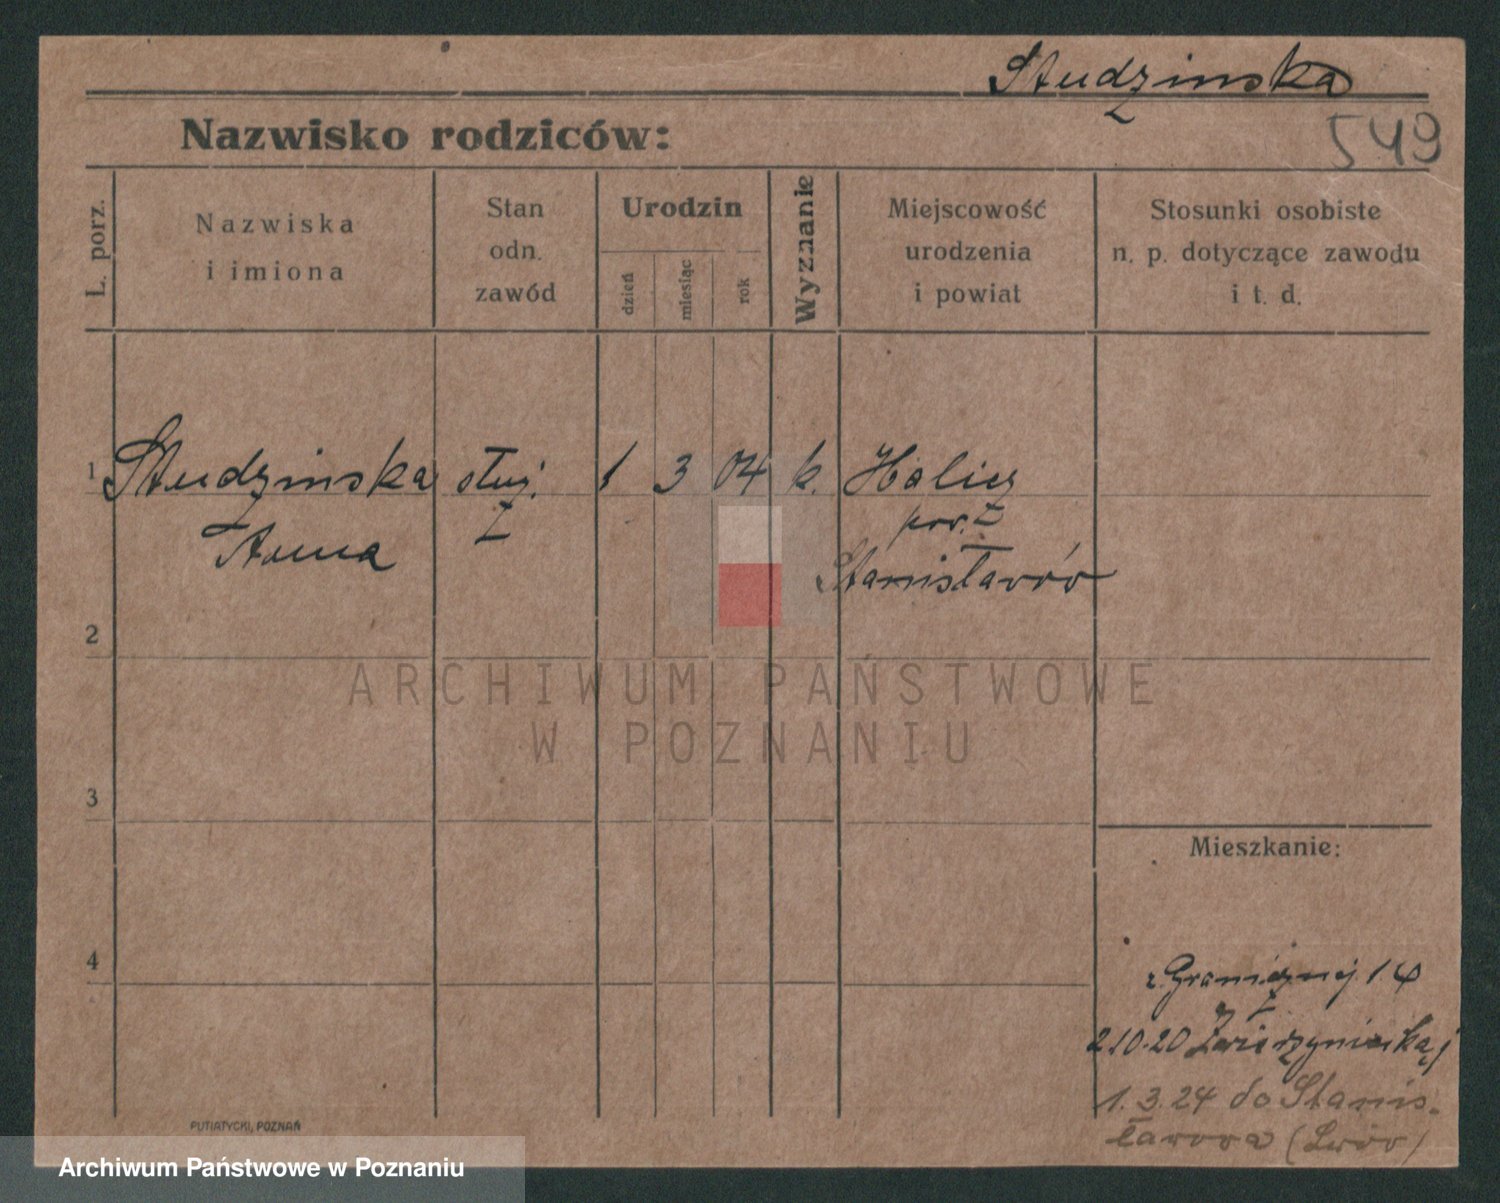 Studzinska
549
Nazwisko rodziców:
L. porz.
Nazwiska
i imiona
Stan
odn.
zawód
Urodzin
dzień
miesiąc
rok
Wyznanie
Miejscowość
urodzenia
i powiat
Stosunki osobiste
n. p. dotyczące zawodu
i t. d.
1 Studzinska służ. 1 3 04 k. Halicz
Anna pow.
Stanisławów
2
ARCHIWUM PAŃSTWOWE
W POZNANIU
3
Mieszkanie:
4
z. Granicznej
2.10.20 Zwierzynieckiej
1.3.24 do Stanis-
ławowa (Lwów)
PUTIATYCKI, POZNAŃ
Archiwum Państwowe w Poznaniu